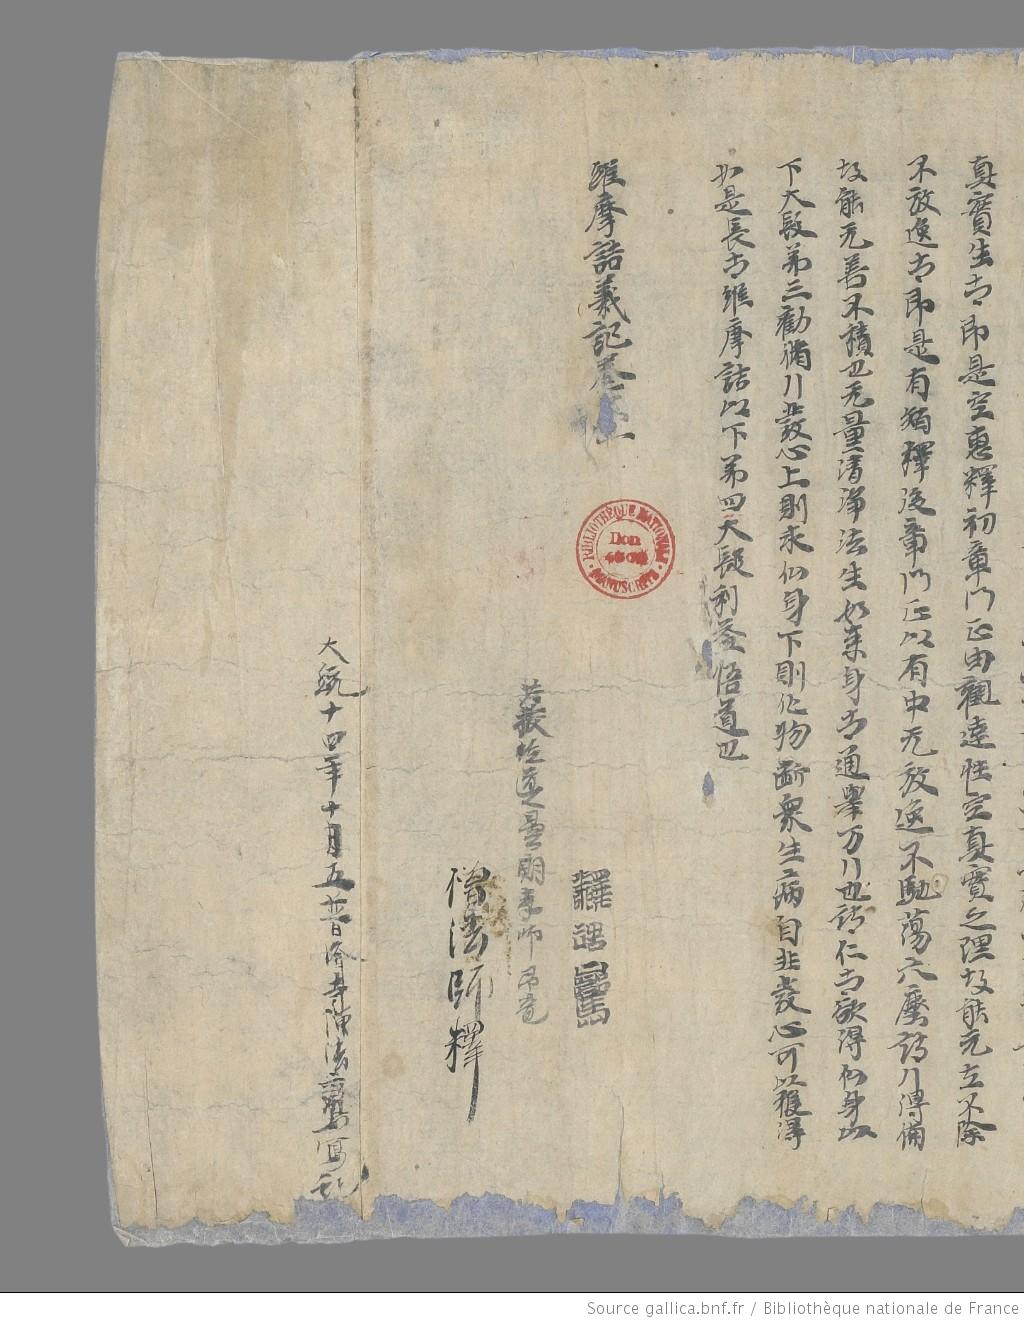 真實生者即是空惠釋初章門正由觀達性空真實之理故能无䒭不除
不放逸者即是有猶釋後章門正以有中无放逸不馳蕩六塵諸行得備
故能无善不積也无量清淨法生如来身者通舉万行也諸仁者欲得仏身
下大段弟三勸備行發心上則求仏身下則化物斷衆生病自非發心可以獲得
如是長者維摩詰以下弟四大段利益悟道也
維摩詰義記卷
釋
僧法師釋
大統十四年十月五日普濟寺僧法鸞寫訖
BIBLIOTHÈQUE NATIONALE
Don
MANUSCRITS
Source gallica.bnf.fr / Bibliothèque nationale de France